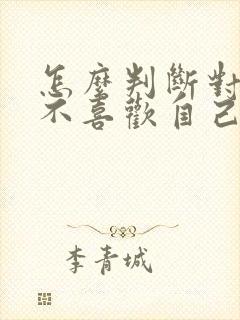 怎麼判斷對
不喜歡自己
李青城